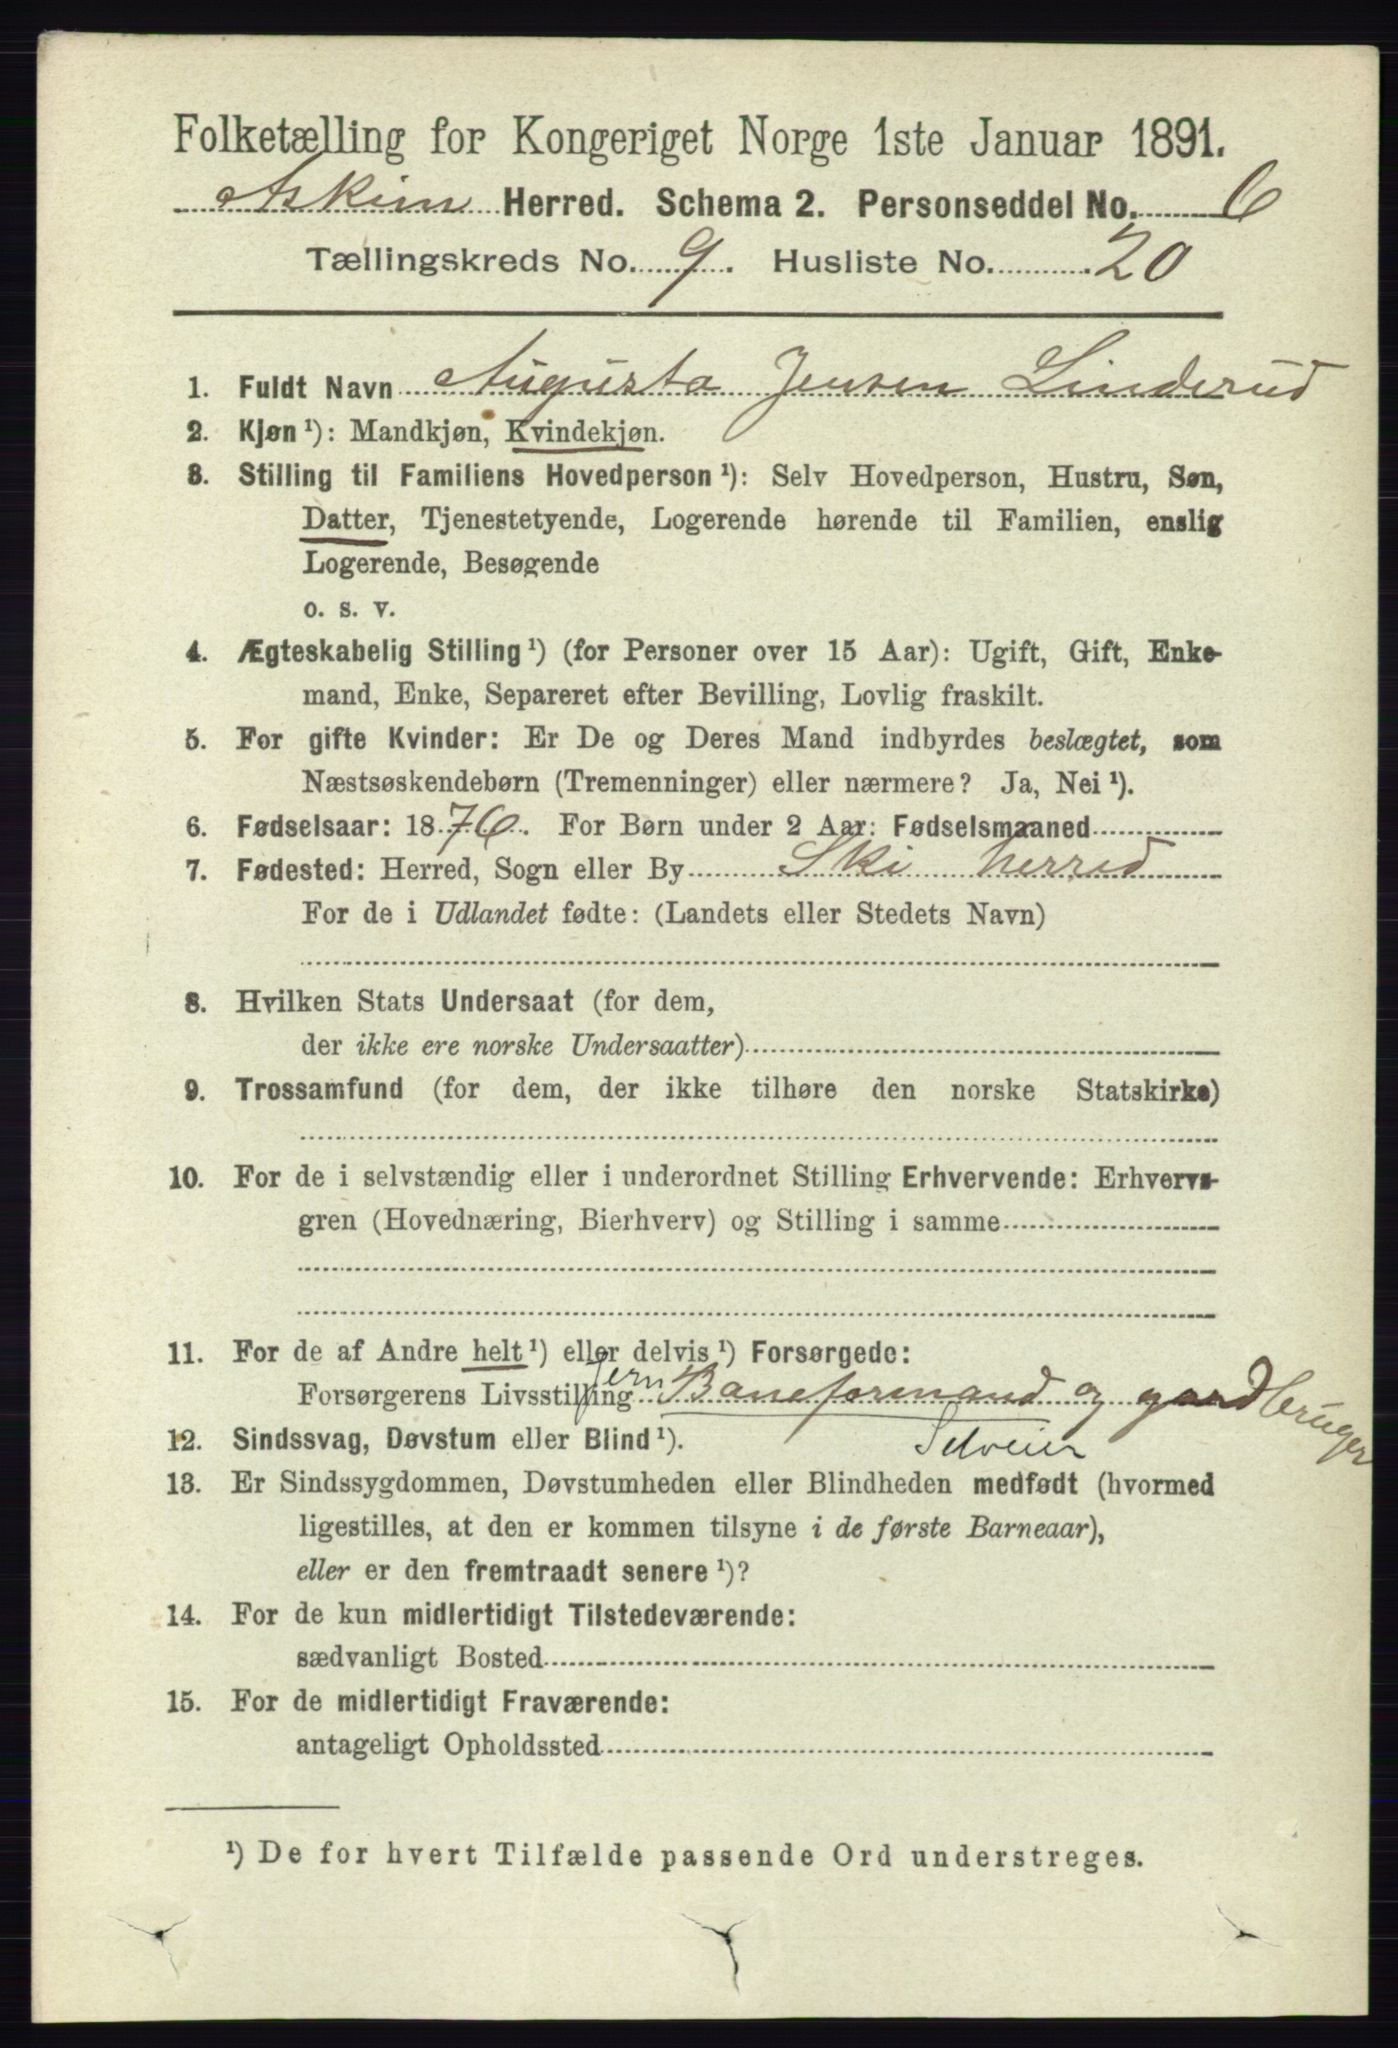 Folketælling for Kongeriget Norge 1ste Januar 1891.
Askim Herred. Schema 2. Personseddel No. 6
Tællingskreds No. 9. Husliste No. 20
1. Fuldt Navn Augusta Jensen Linderud
2. Kjøn ¹): Mandkjøn, Kvindekjøn.
3. Stilling til Familiens Hovedperson ¹): Selv Hovedperson, Hustru, Søn,
Datter, Tjenestetyende, Logerende hørende til Familien, enslig
Logerende, Besøgende
o. s. v.
4. Ægteskabelig Stilling ¹) (for Personer over 15 Aar): Ugift, Gift, Enke-
mand, Enke, Separeret efter Bevilling, Lovlig fraskilt.
5. For gifte Kvinder: Er De og Deres Mand indbyrdes beslægtet, som
Næstsøskendebørn (Tremenninger) eller nærmere? Ja, Nei ¹).
6. Fødselsaar: 1876. For Børn under 2 Aar: Fødselsmaaned
7. Fødested: Herred, Sogn eller By Ski herred
For de i Udlandet fødte: (Landets eller Stedets Navn)
8. Hvilken Stats Undersaat (for dem,
der ikke ere norske Undersaatter)
9. Trossamfund (for dem, der ikke tilhøre den norske Statskirke)
10. For de i selvstændig eller i underordnet Stilling Erhvervende: Erhvervs-
gren (Hovednæring, Bierhverv) og Stilling i samme
11. For de af Andre helt ¹) eller delvis ¹) Forsørgede:
Forsørgerens Livsstilling Jern Baneformand og gardbruger
12. Sindssvag, Døvstum eller Blind ¹). Selveier
13. Er Sindssygdommen, Døvstumheden eller Blindheden medfødt (hvormed
ligestilles, at den er kommen tilsyne i de første Barneaar),
eller er den fremtraadt senere ¹)?
14. For de kun midlertidigt Tilstedeværende:
sædvanligt Bosted
15. For de midlertidigt Fraværende:
antageligt Opholdssted
¹) De for hvert Tilfælde passende Ord understreges.